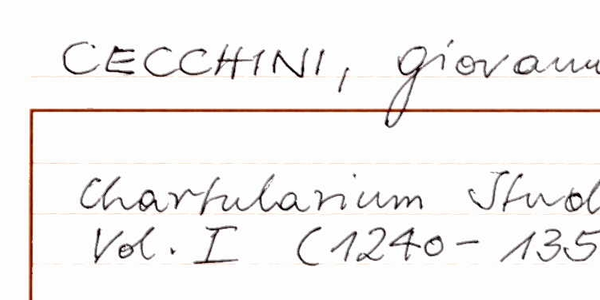 CECCHINI, Giovann
Chartularium Stud
Vol. I (1240-135